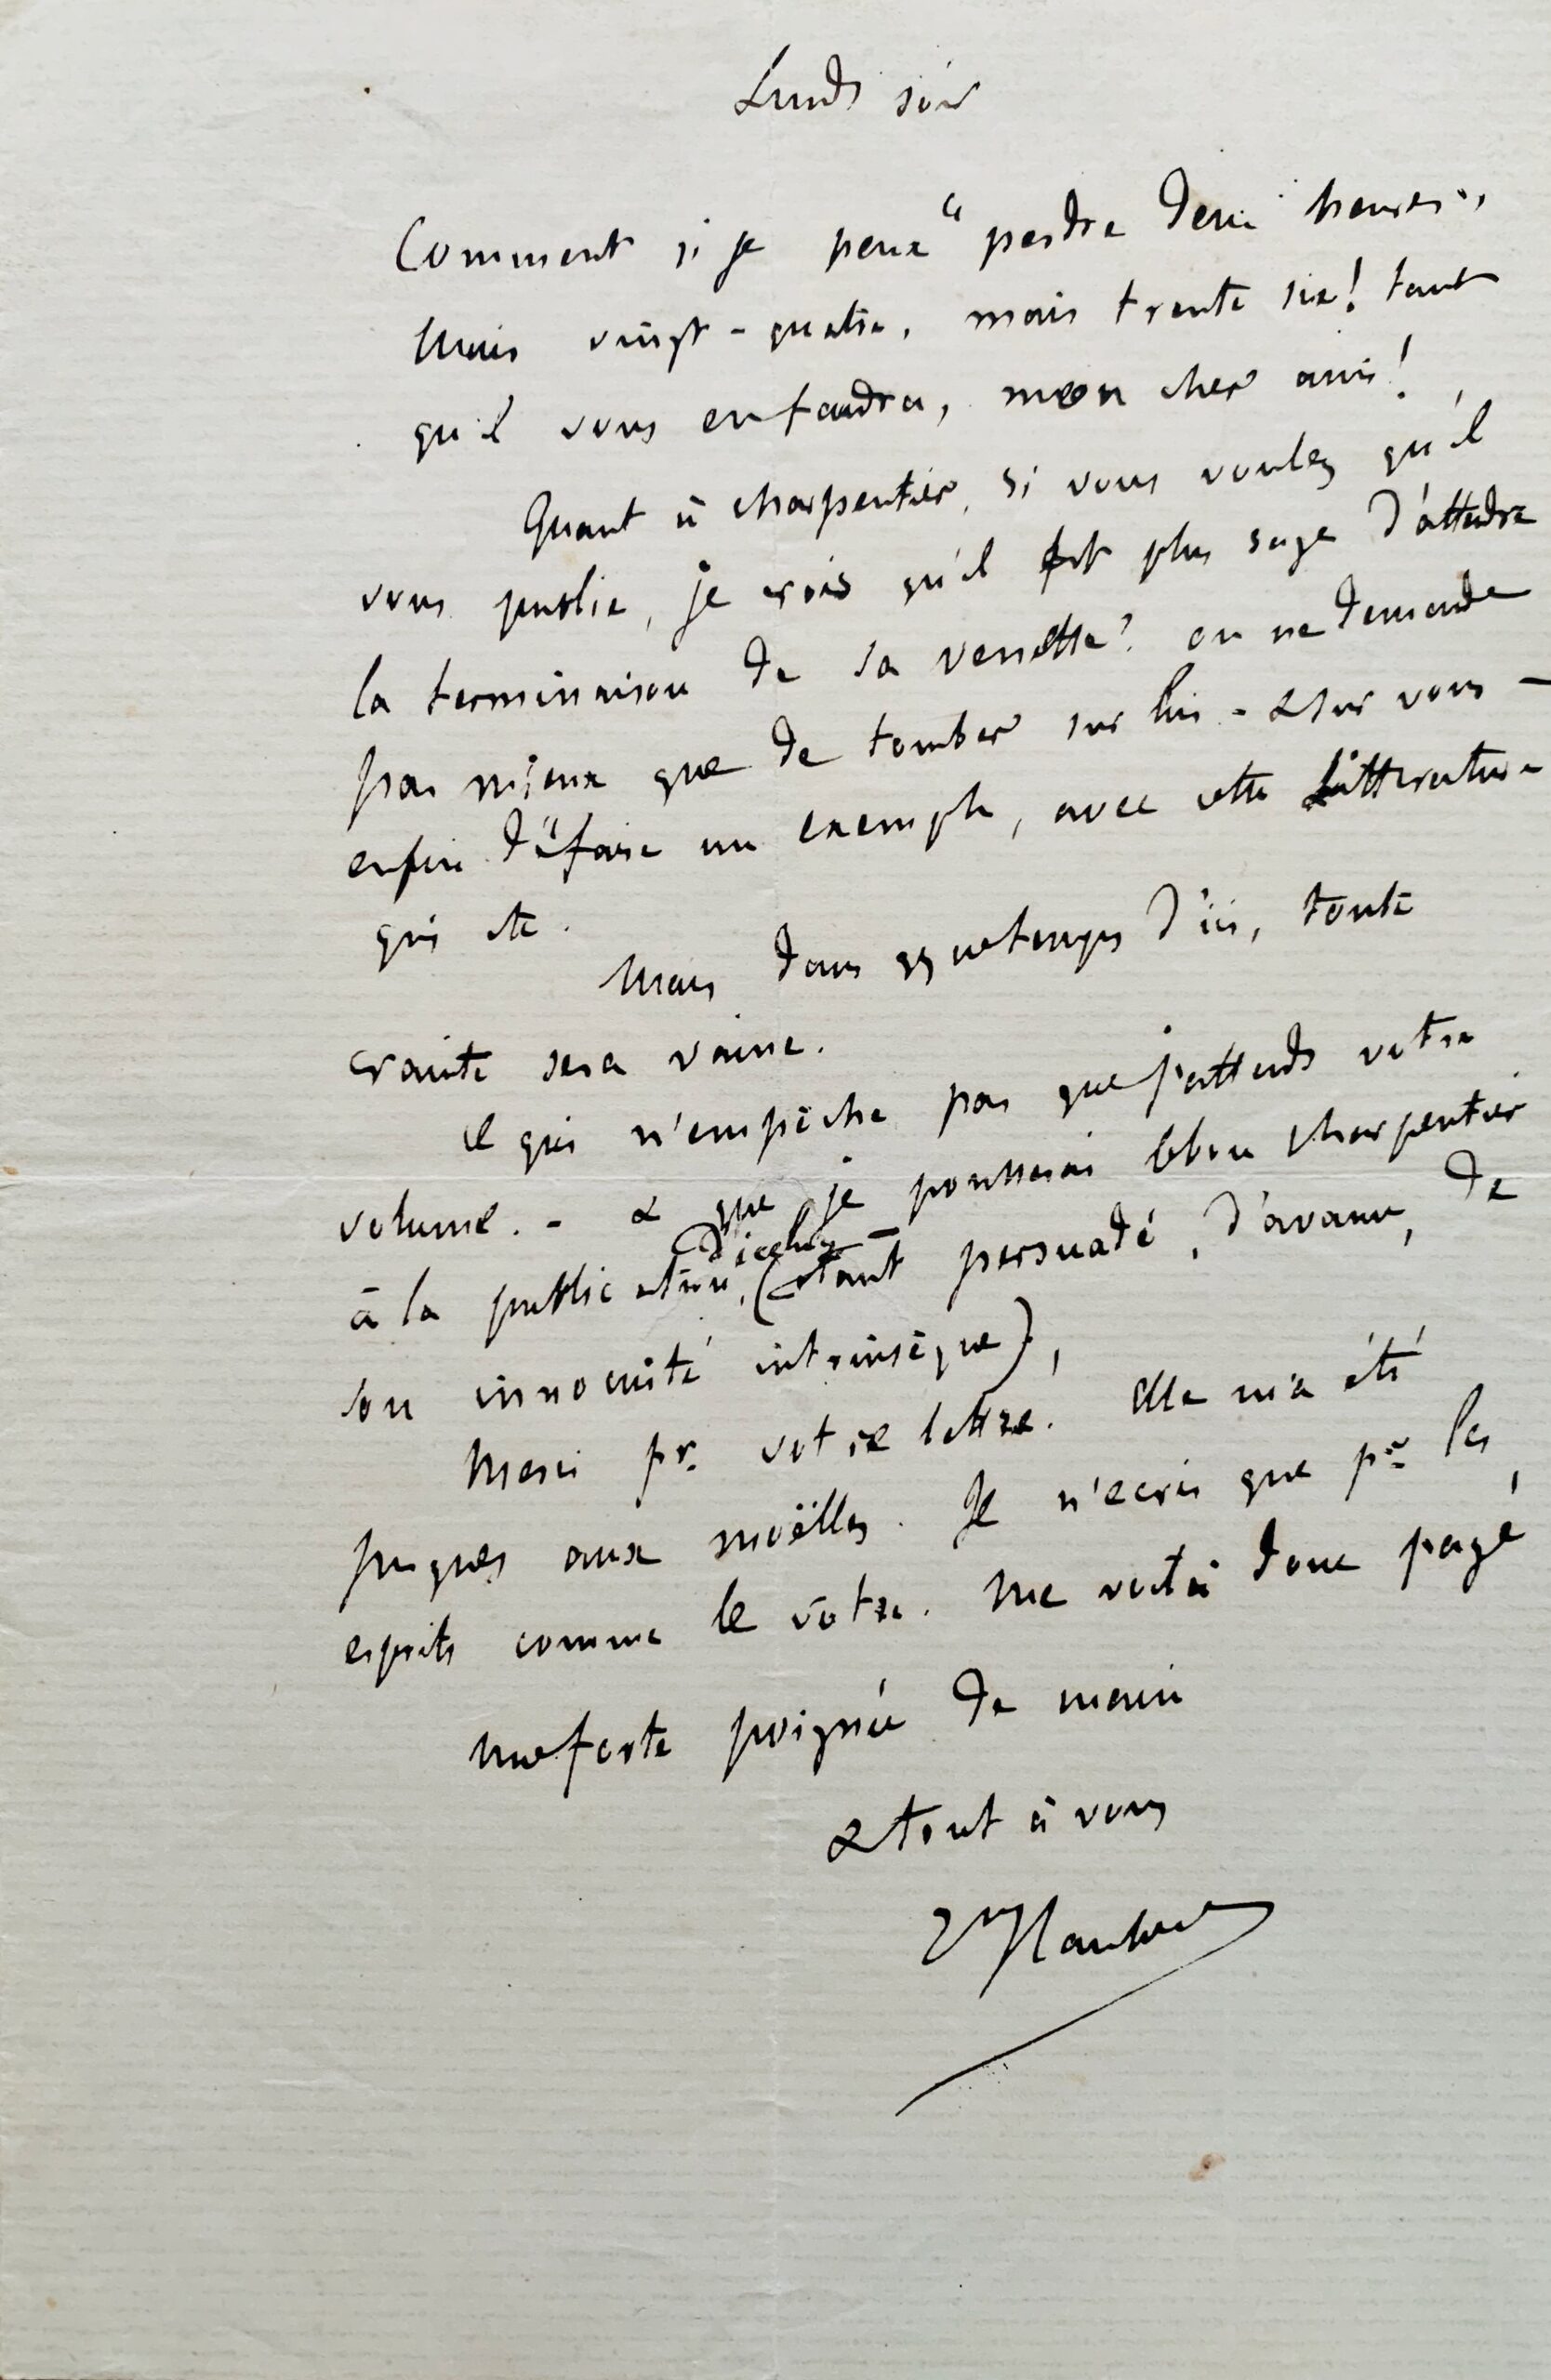 Lundi soir
Comment si je peux "perdre deux heures",
Mais vingt-quatre, mais trente six! tant
qu'il vous en faudra, mon cher ami!
Quant à Charpentier, si vous voulez qu'il
vous publie, je crois qu'il est plus sage d'attendre
la terminaison de sa venette? on ne demande
pas mieux que de tomber sur lui - & sur vous -
enfin d'"faire un exemple, avec cette Littérature
qui etc.
Mais dans qq ue temps d'ici, toute
crainte sera vaine.
Ce qui n'empêche pas que j'attends votre
volume. - & que je pousserai le bon Charpentier
à la publication d'icelui, (étant persuadé, d'avance, de
son innocuité intrinsèque),
Merci pr. votre lettre. Elle m'a été
jusques aux moëlles. Je n'écris que pr les
esprits comme le vôtre. Me voilà donc payé
une forte poignée de main
& tout à vous
Gve Flaubert